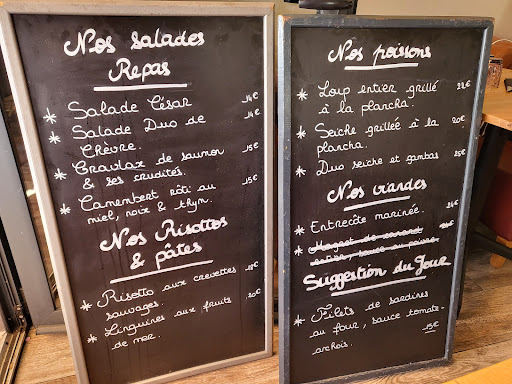 Nos salades
Repas
* Salade César 14€
* Salade Duo de 14€
Chèvre.
* Gravlax de saumon 15€
& ses crudités.
* Camembert rôti au 15€
miel, noix & thym.
Nos Risottos
& pâtes
* Risotto aux crevettes
sauvages.
* Linguines aux fruits 20€
de mer.
Nos poissons
* Loup entier grillé
à la plancha.
* Seiche grillée à la 20€
plancha.
* Duo seiche et gambas 25€
Nos viandes
* Entrecôte marinée.
* Magret de canard
entier, sauce au poivre
Suggestion du Jour
* Filets de sardines
au four, sauce tomate-
anchois. 15€